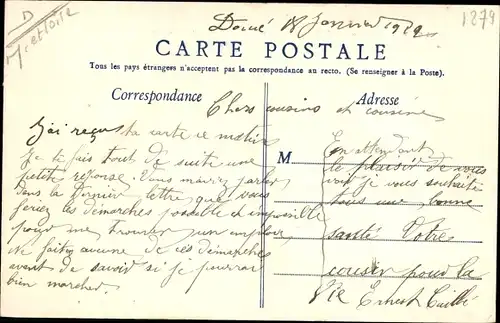 D
M et Loire
Doué 18 Janvier 1912
1279
CARTE POSTALE
Tous les pays étrangers n'acceptent pas la correspondance au recto. (Se renseigner à la Poste).
Correspondance
Adresse
Chers cousins et cousine
J'ai reçu ta carte ce matin
Je te fais tout de suite une
petite réponse. Vous m'aviez parler
dans la dernière lettre que vous
feriez les démarches possible et impossible
pour me trouver un emploi
Ne faites aucune de ces démarches
avant de savoir si je pourrai
bien marcher.
M
En attendant
le plaisir de vous
voir je vous souhaite
tous une bonne
santé Votre
cousin pour la
Vie Ernest